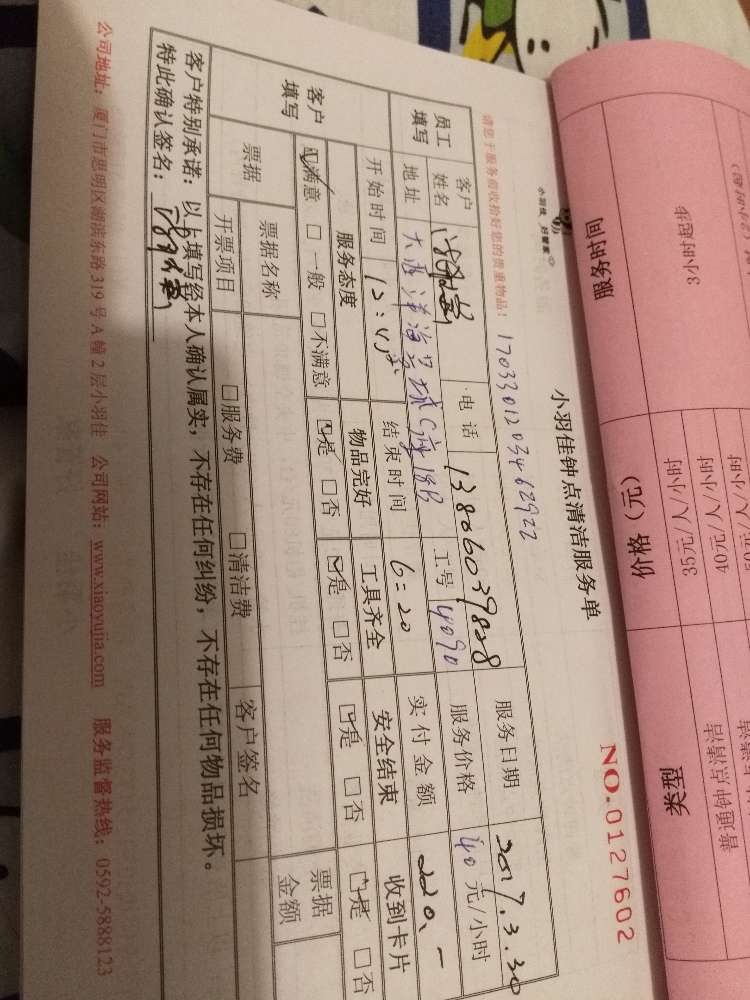 服务时间
价格（元）
类型
3小时起步
35元/人/小时
普通钟点清洁
40元/人/小时
小羽佳钟点清洁服务单
NO.0127602
小羽佳 好管家
请您于服务前收拾好您的贵重物品！
1703301203462922
员工填写
客户姓名
电话
13806039828
服务日期
2017.3.30
地址
大西洋海景城C座18B
工号
4090
服务价格
40 元/小时
开始时间
12:45
结束时间
6:20
实付金额
220.-
客户填写
服务态度
物品完好
工具齐全
安全结束
收到卡片
☑满意 □一般 □不满意
☑是 □否
☑是 □否
☑是 □否
☑是 □否
票据
票据名称
客户签名
票据金额
开票项目
□服务费 □清洁费
客户特别承诺：以上填写经本人确认属实，不存在任何纠纷，不存在任何物品损坏。
特此确认签名：
公司地址：厦门市思明区湖滨东路319号A幢2层小羽佳 公司网站：www.xiaoyujia.com 服务监督热线：0592-5888123